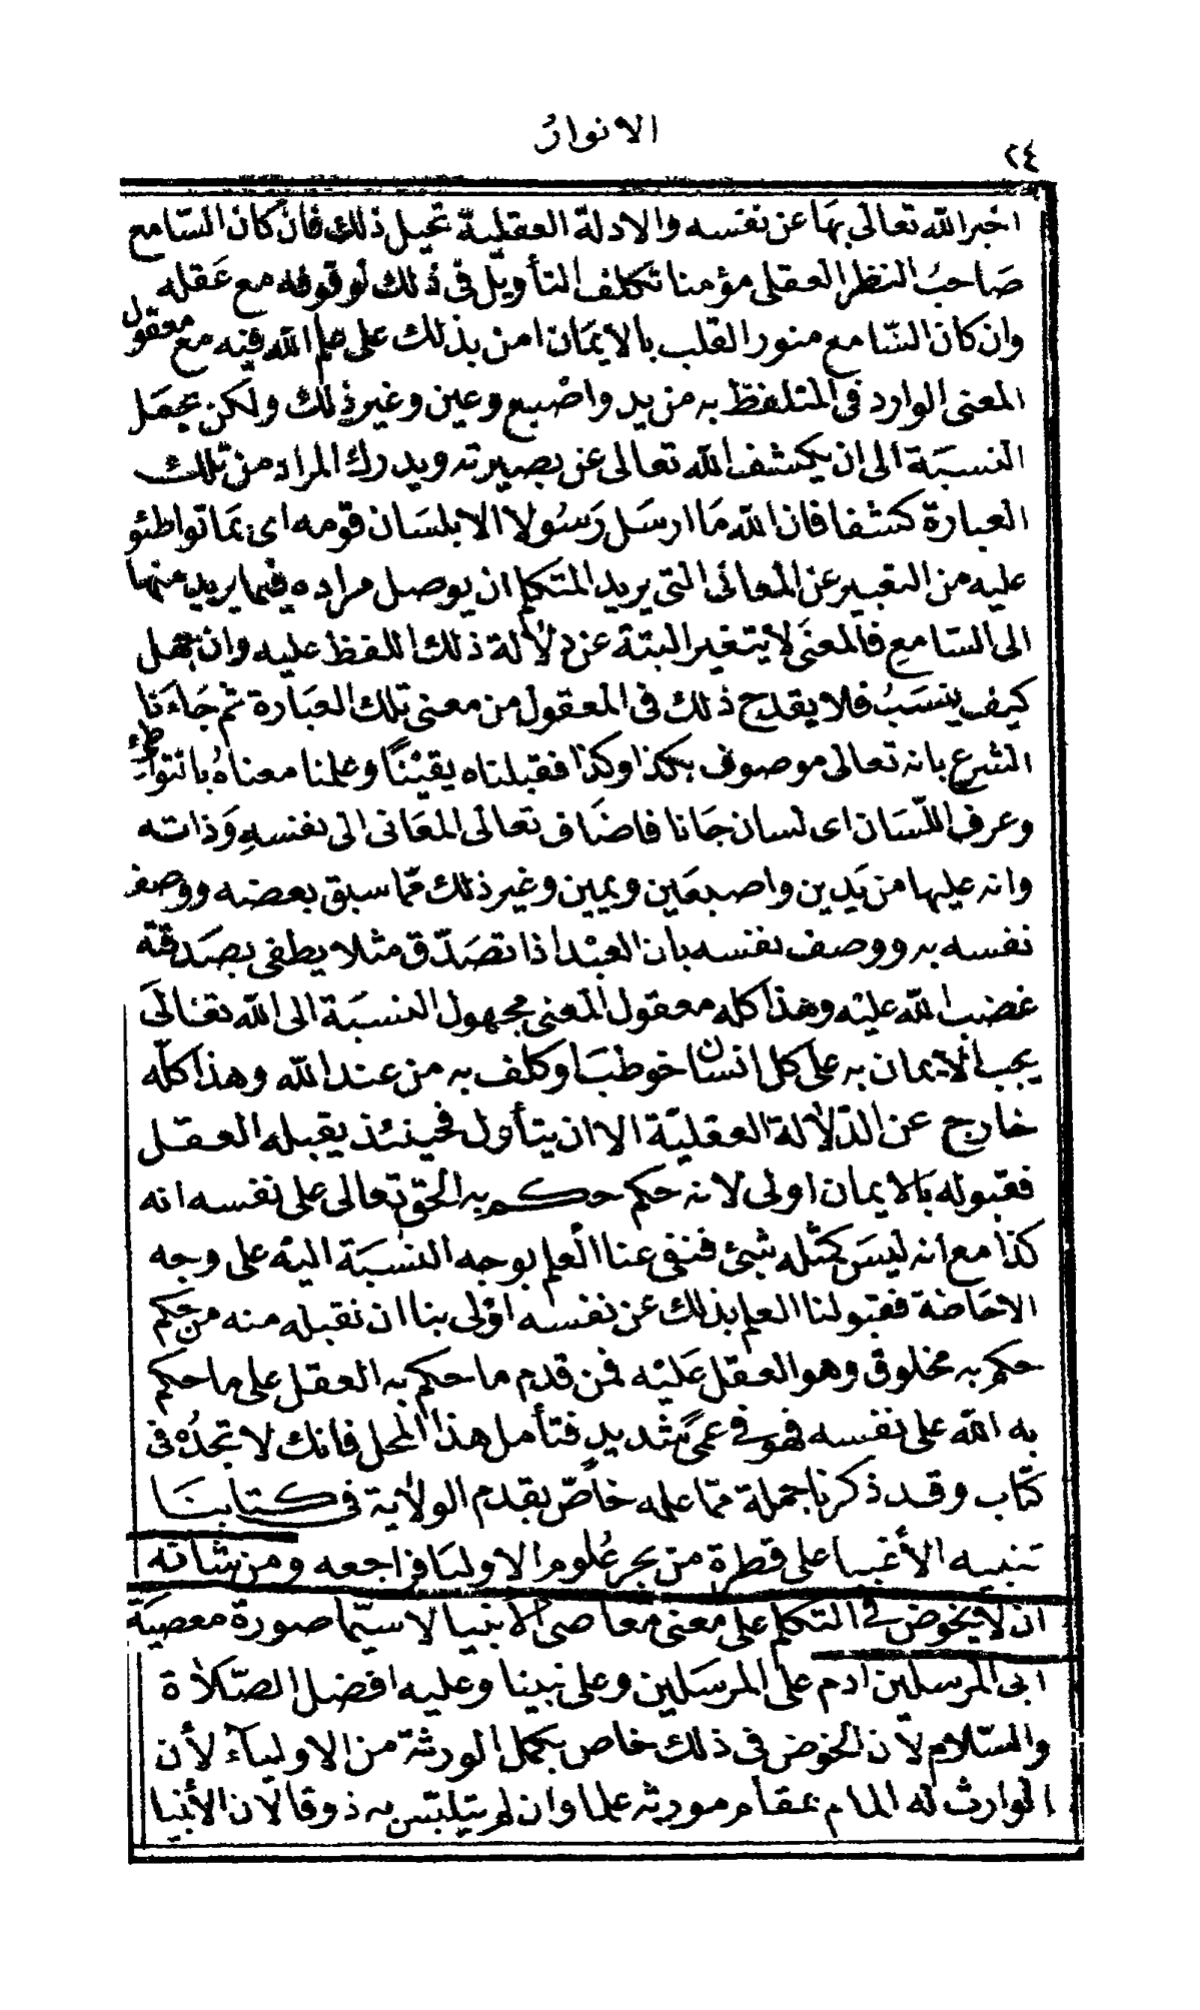 الانوار
٢٤
اخبر الله تعالى بها عن نفسه والادلة العقلية تحيل ذلك فان كان السامع
صاحب النظر العقلى مؤمنا تكلف التأويل فى ذلك لوقوفه مع عقله
وان كان السامع منور القلب بالايمان امن بذلك على علم الله فيه مع معقول
المعنى الوارد فى المتلفظ به من يد واصبع وعين وغير ذلك ولكن يجهل
النسبة الى ان يكشف الله تعالى عن بصيرته ويدرك المراد من تلك
العبارة كشفا فان الله ما ارسل رسولا الا بلسان قومه اى بما تواطئو
عليه من التعبير عن المعانى التى يريد المتكلم ان يوصل مراده فيما يريد منها
الى السامع فالمعنى لا يتغير البتة عن دلالة ذلك اللفظ عليه وان جهل
كيف ينسب فلا يقدح ذلك فى المعقول من معنى تلك العبارة ثم جاءنا
الشرع بانه تعالى موصوف بكذا وكذا فقبلناه يقينًا وعلمنا معناه بالتواطئ
وعرف اللسان اى لسان جانا فاضاف تعالى المعانى الى نفسه وذاته
وانه عليها من يدين واصبعين ويمين وغير ذلك مما سبق بعضه ووصف
نفسه به ووصف نفسه بان العبد اذا تصدّق مثلا يطفى بصدقة
غضب الله عليه وهذا كله معقول المعنى مجهول النسبة الى الله تعالى
يجب الايمان به على كل انسان خوطب او كلف به من عند الله وهذا كلّه
خارج عن الدّلالة العقليّة الا ان يتأول فحينئذ يقبله العقل
فقبوله بالايمان اولى لانه حكم حكم به الحق تعالى على نفسه انه
كذا مع انه ليس كمثله شئ فنفى عنا العلم بوجه النسبة اليه على وجه
الاحاضة فقبولنا العلم بذلك عن نفسه اولى بنا ان نقبله منه من حكم
حكم به مخلوق وهو العقل عليه فمن قدم ما حكم به العقل على ما حكم
به الله على نفسه فهو فى عمى شديد فتأمل هذا المحل فانك لا تجده فى
كتاب وقد ذكرنا جملة مما علمه خاصّ بقدم الولاية فى كتابنا
تنبيه الأغبيا على قطرة من بحر علوم الاوليا فراجعه ومن شانه
ان لا يخوض فى التكلم على معنى معاصى الانبيا لا سيّما صورة معصية
ابى المرسلين ادم على المرسلين وعلى نبينا وعليه افضل الصّلاة
والسّلام لان الخوض فى ذلك خاص بكمل الورثة من الاولياء لأن
الوارث له المام بمقام مورثه علما وان لم يتلبّس به ذوقا لان الأنبيا